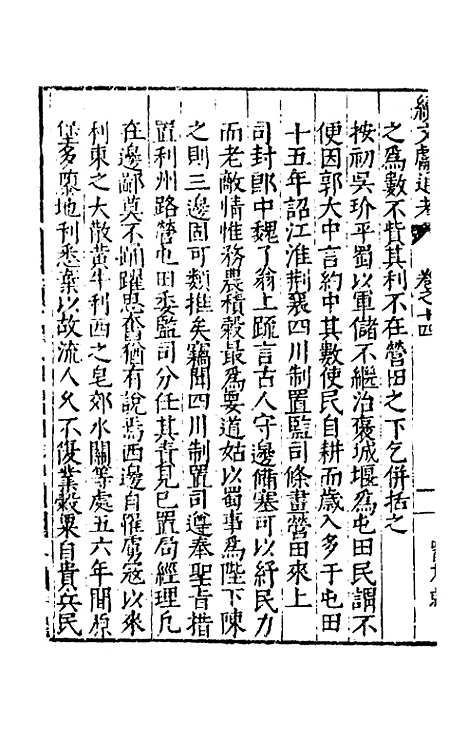 續文獻通考 卷之十四
之爲數不貲其利不在營田之下乞併括之
按初吳玠平蜀以軍儲不繼治褒城堰爲屯田民謂不
便因郭大中言約中其數使民自耕而歲入多于屯田
十五年詔江淮荆襄四川制置監司條畫營田來上
司封郎中魏了翁上疏言古人守邊備塞可以紓民力
而老敵情惟務農積穀最爲要道姑以蜀事爲陛下陳
之則三邊固可類推矣竊聞四川制置司遵奉聖旨措
置利州路營屯田委監司分任其責見已置局經理凡
在邊鄙莫不踊躍思奮猶有說焉西邊自罹虜寇以來
利東之大散黃牛利西之皂郊水關等處五六年間原
堡多隳地利悉棄以故流人久不復業穀粟自貴兵民